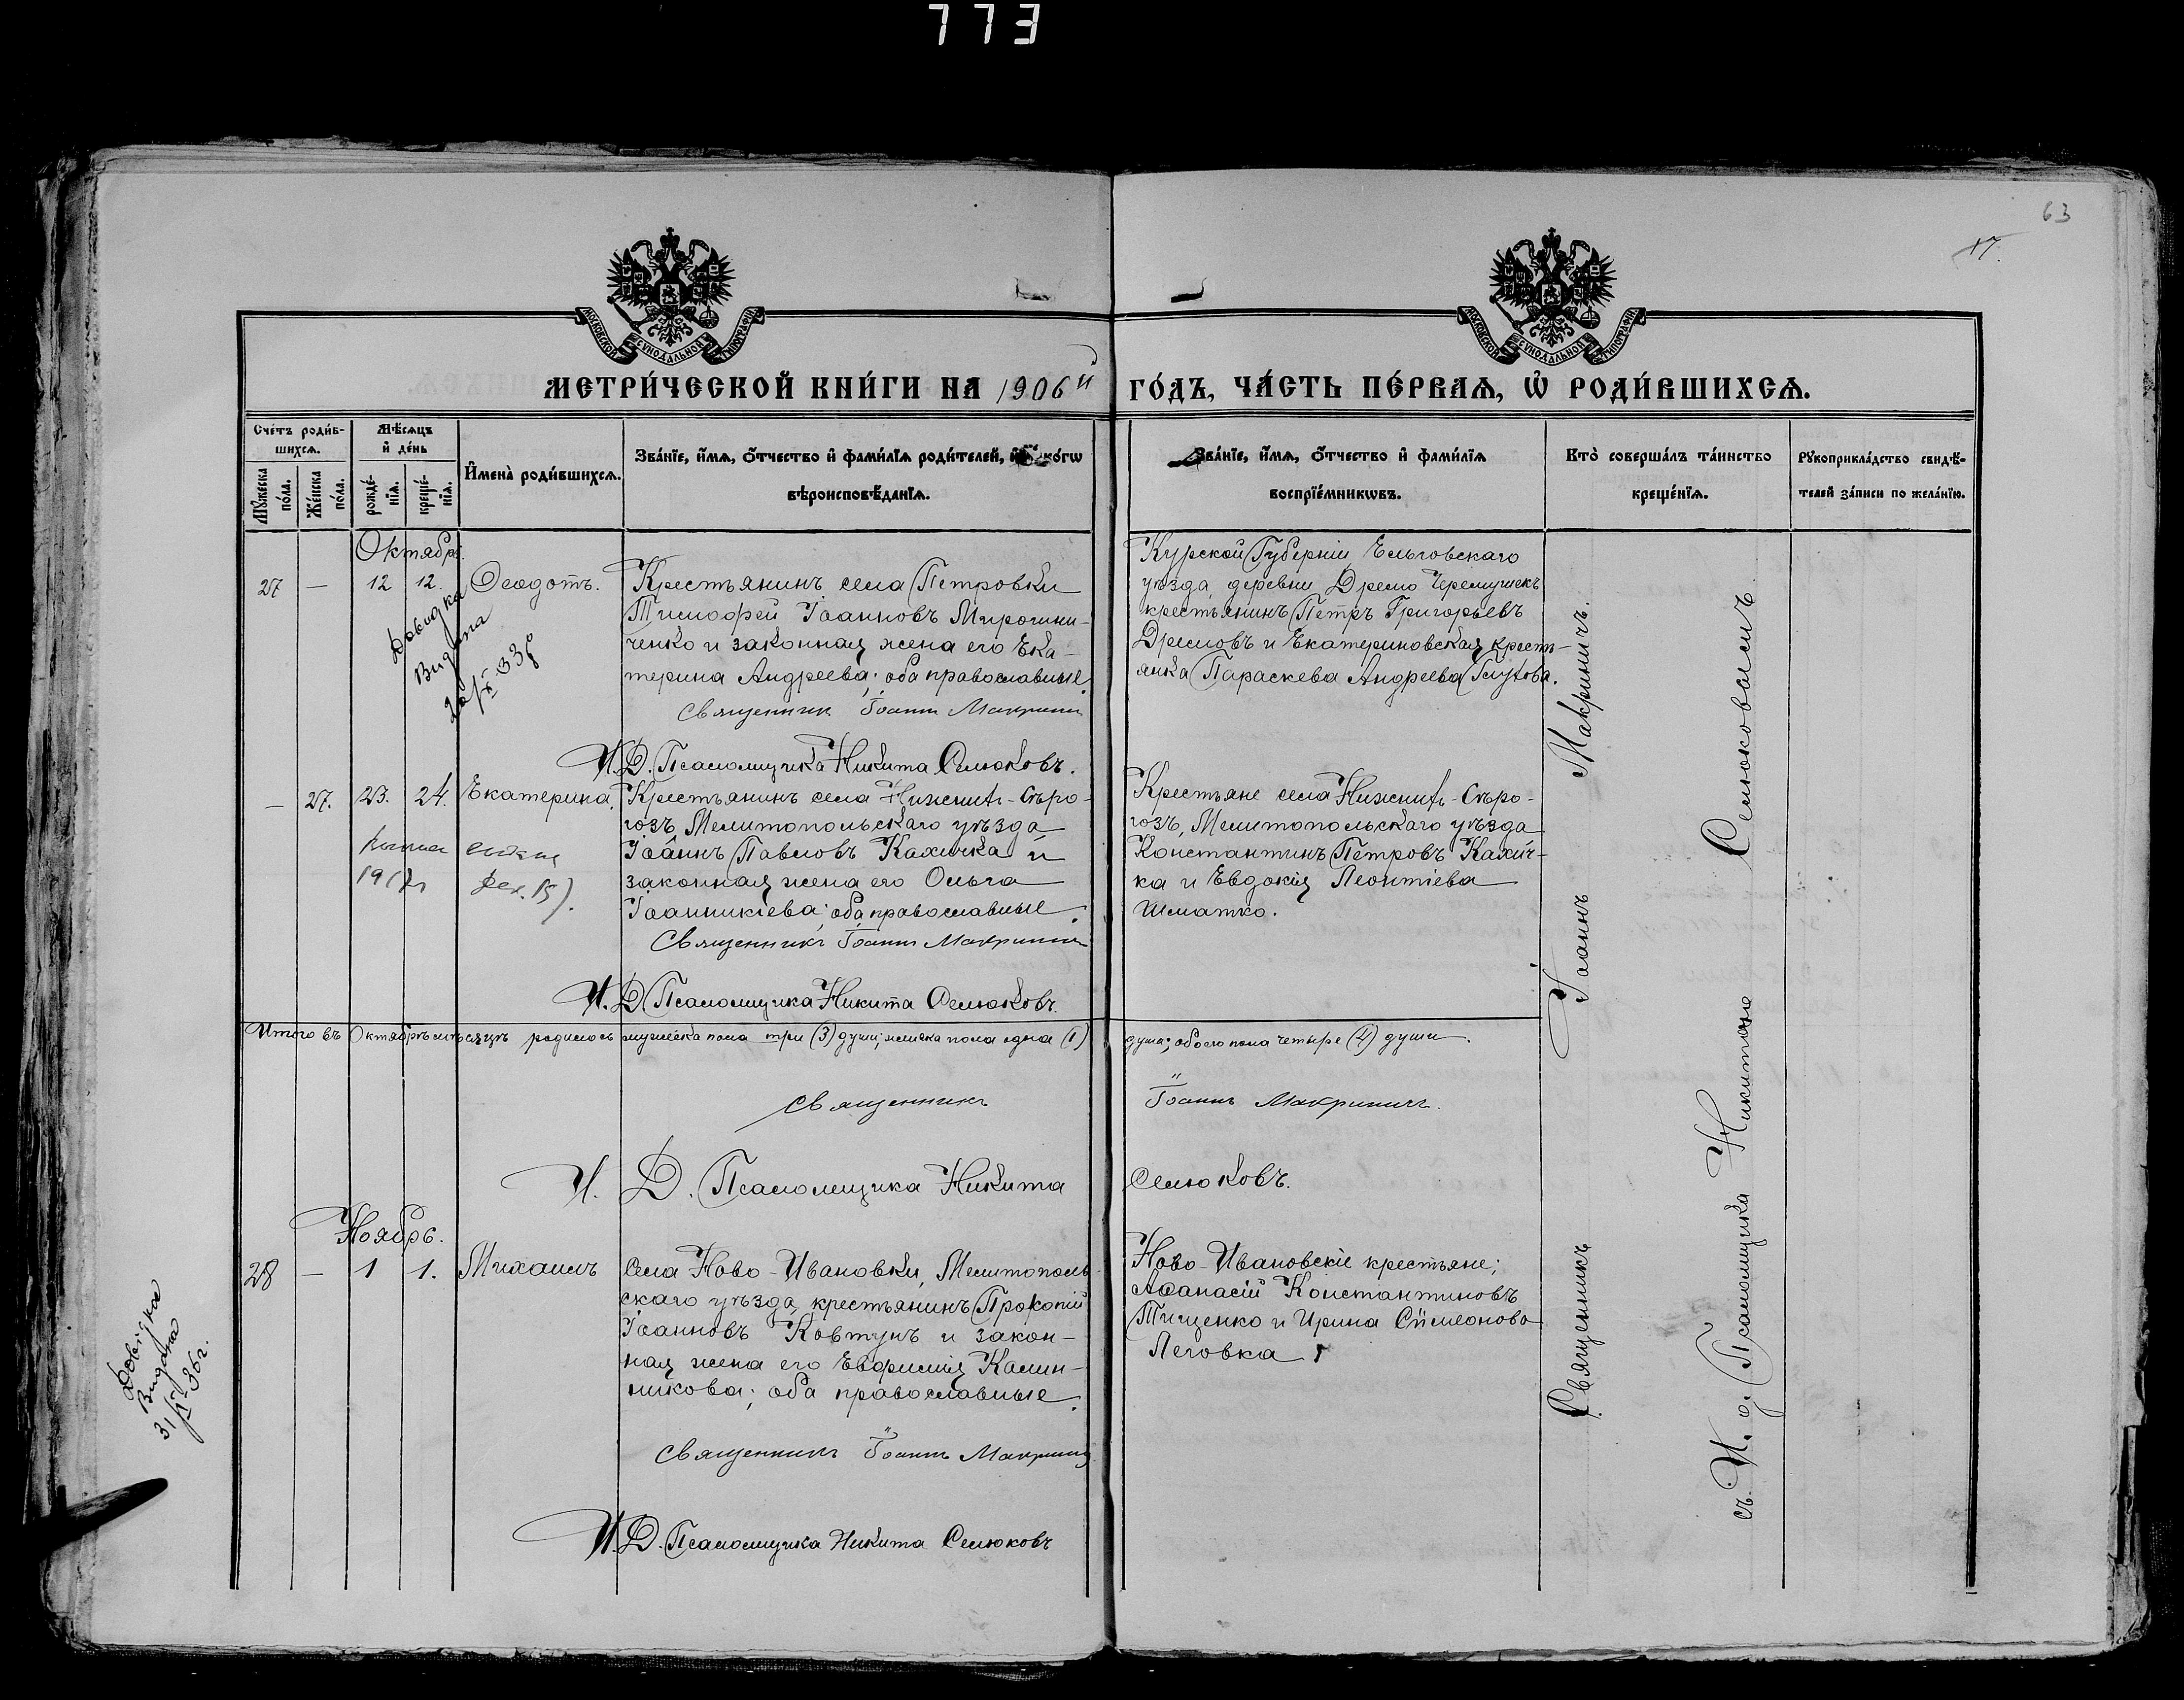 773
63
17.
МОСКОВСКОЙ СѴНОДАЛЬНОЙ ТИПОГРАФІИ
МОСКОВСКОЙ СѴНОДАЛЬНОЙ ТИПОГРАФІИ
МЕТРИ́ЧЕСКОЙ КНИ́ГИ НА 1906й ГО́ДЪ, ЧА́СТЬ ПЕ́РВАѦ, Ѽ РОДИ́ВШИХСѦ.
Сче́тъ роди́в-
шихсѧ.
Мѣ́сѧцъ
и҆ де́нь
Мꙋ́жеска по́ла.
Же́нска по́ла.
рожде́-нїѧ.
креще́-нїѧ.
И҆мена̀ роди́вшихсѧ.
Зва́нїе, и҆́мѧ, ѻ҆́тчество и҆ фами́лїѧ роди́телей, и҆ ко́гѡ
вѣроисповѣ́данїѧ.
Зва́нїе, и҆́мѧ, ѻ҆́тчество и҆ фами́лїѧ
воспрїе́мникѡвъ.
Кто̀ соверша́лъ та́инство
креще́нїѧ.
Рꙋкоприкла́дство свидѣ́-
телей за́писи по жела́нїю.
Октябрь.
27 — 12 12. Ѳеодотъ.
Крестьянинъ села Петровки
Тимофей Іоанновъ Мирошни-
ченко и законная жена его Ека-
терина Андреева; оба православные.
Священник Іоанн Макринич
И. Д. Псаломщика Никита Селюковъ.
Курской Губерніи Льговскаго
уѣзда, деревни Дремо Черемушекъ
крестьянинъ Петръ Григорьевъ
Дремовъ и Екатериновская кресть-
янка Параскева Андреева Глухова.
Довидка
Видана
— 27. 23. 24. Екатерина.
Крестьянинъ села Нижнихъ-Сѣро-
гозъ, Мелитопольскаго уѣзда
Іоаннъ Павловъ Кахичка и
законная жена его Ольга
Іоанникіева; оба православные.
Священникъ Іоаннъ Макринич
И. Д. Псаломщика Никита Селюковъ.
Крестьяне села Нижнихъ-Сѣро-
гозъ, Мелитопольскаго уѣзда
Константинъ Петровъ Кахич-
ка и Евдокія Леонтіева
Шматко.
Итого въ Октябрѣ мѣсяцѣ родилось мужеска пола три (3) души; женска пола одна (1) душа; обоего пола четыре (4) души.
Священникъ Іоаннъ Макриничъ.
И. Д. Псаломщика Никита Селюковъ.
Ноябрь.
28 — 1 1. Михаилъ
Села Ново-Ивановки, Мелитополь-
скаго уѣзда, крестьянинъ Прокопій
Іоанновъ Ковтунъ и закон-
ная жена его Евфимія Калин-
никова; оба православные.
Священникъ Іоаннъ Макринич
И. Д. Псаломщика Никита Селюковъ
Ново-Ивановскіе крестьяне;
Аѳанасій Константиновъ
Тищенко и Ирина Сѵмеонова
Леговка
Довідка
Видана
Священникъ Іоаннъ Макриничъ.
съ И. д. Псаломщика Никитою Селюковымъ